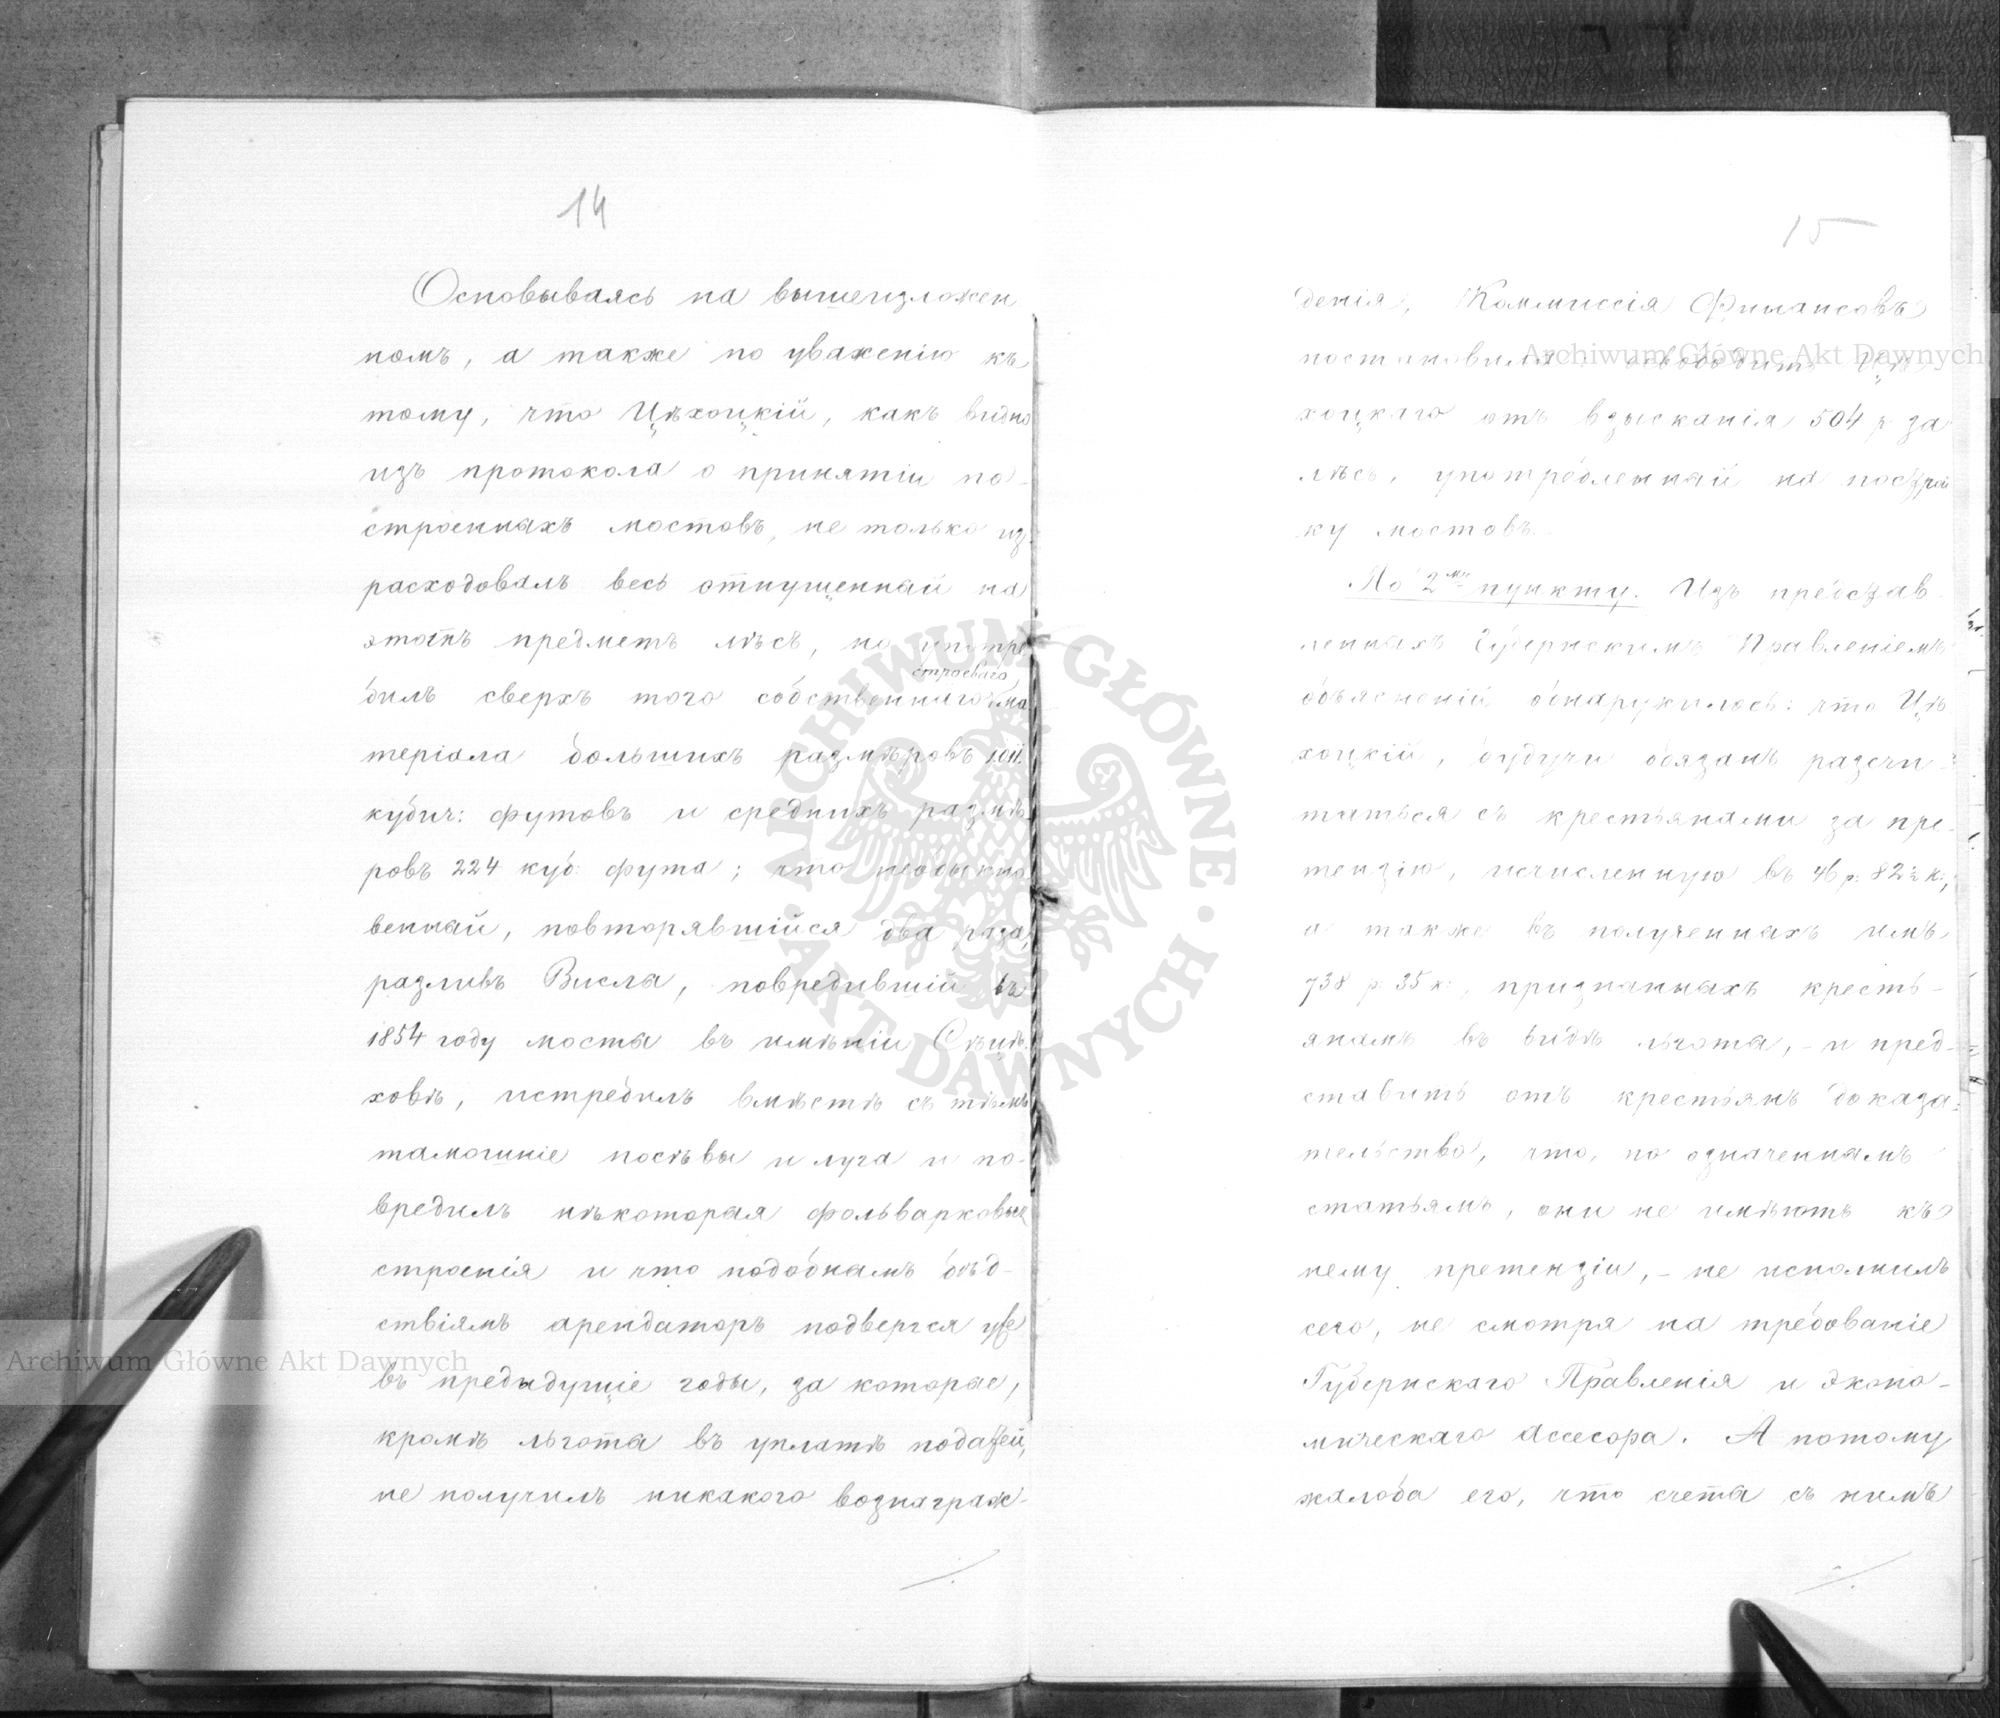 14
Основываясь на вышеизложен
номъ, а также по уваженію къ
тому, что Цѣхоцкій, какъ видно
изъ протокола о принятіи по-
строенныхъ мостовъ, не только из
расходовалъ весь отпущенный на
этотъ предметъ лѣсъ, но употре
строеваго
билъ сверхъ того собственнаго ма
теріала большихъ размѣровъ
кубич: футовъ и среднихъ размѣ
ровъ 224 куб: фута; что необыкно
венный, повторявшійся два раза,
разливъ Вислы, повредившій въ
1854 году мосты въ имѣніи Сѣцѣ
ховѣ, истребилъ вмѣстѣ съ тѣмъ
тамошніе посѣвы и луга и по-
вредилъ нѣкоторыя фольварковыя
строенія и что подобнымъ бѣд-
ствіямъ арендаторъ подвергся уже
въ предыдущіе годы, за которые,
кромѣ льготы въ уплатѣ податей,
не получилъ никакого вознаграж-
15
денія, Коммиссія Финансовъ
постановила: освободить Цѣ-
хоцкаго отъ взысканія 504 р за
лѣсъ, употребленный на построй
ку мостовъ.
По 2му пункту. Изъ представ-
ленныхъ Губернскимъ Правленіемъ
объясненій обнаружилось: что Цѣ
хоцкій, будучи обязанъ разсчи-
таться съ крестьянами за пре-
тензію, исчисленную въ 46 р. 82½ к.,
а также въ полученныхъ имъ
738 р. 35 к., признанныхъ кресть-
янамъ въ видѣ льготы, - и пред-
ставить отъ крестьянъ доказа-
тельство, что, по означеннымъ
статьямъ, они не имѣютъ къ
нему претензіи, - не исполнилъ
сего, не смотря на требованіе
Губернскаго Правленія и эконо-
мическаго Ассесора. А потому
жалоба его, что счеты съ нимъ
Archiwum Główne Akt Dawnych
Archiwum Główne Akt Dawnych
ARCHIWUM GŁÓWNE · AKT DAWNYCH ·